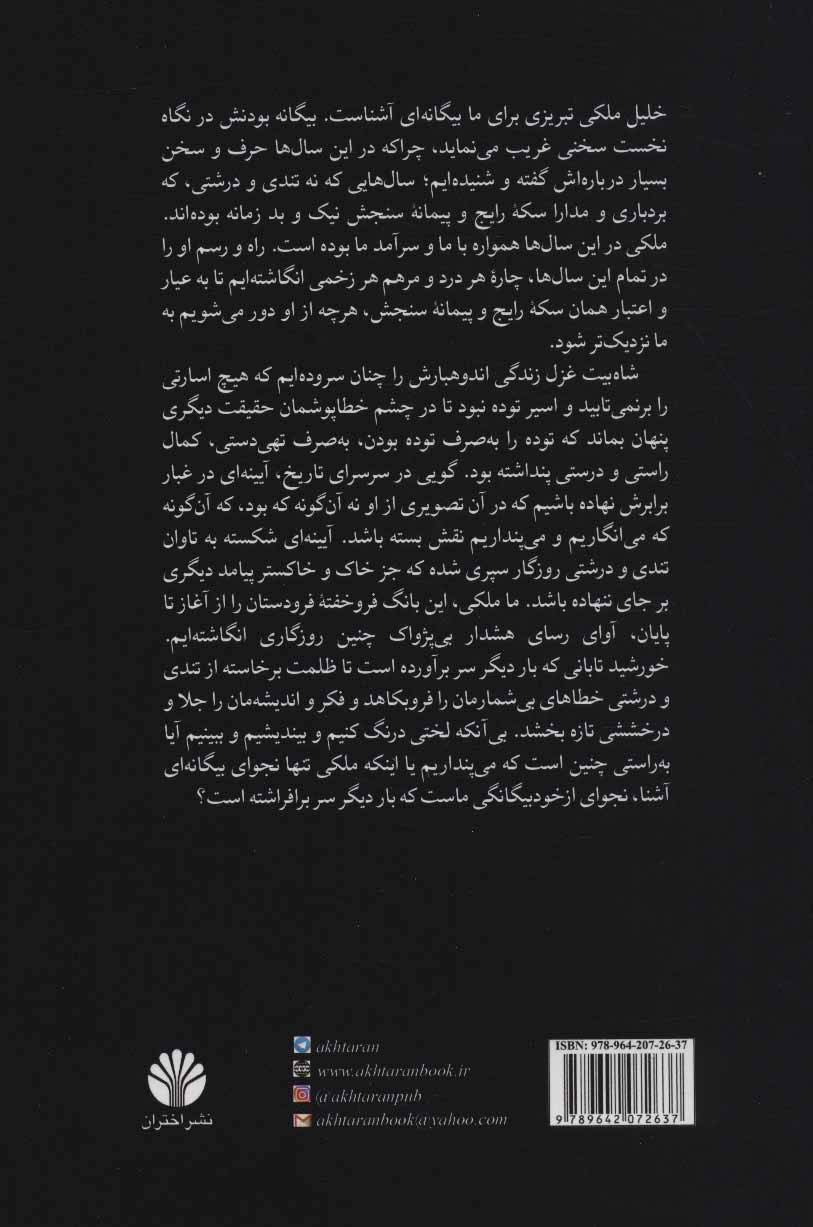 خلیل ملکی تبریزی برای ما بیگانه‌ای آشناست. بیگانه بودنش در نگاه
نخست سخنی غریب می‌نماید، چراکه در این سال‌ها حرف و سخن
بسیار درباره‌اش گفته و شنیده‌ایم؛ سال‌هایی که نه تندی و درشتی، که
بردباری و مدارا سکهٔ رایج و پیمانهٔ سنجش نیک و بد زمانه بوده‌اند.
ملکی در این سال‌ها همواره با ما و سرآمد ما بوده است. راه و رسم او را
در تمام این سال‌ها، چارهٔ هر درد و مرهم هر زخمی انگاشته‌ایم تا به عیار
و اعتبار همان سکهٔ رایج و پیمانهٔ سنجش، هرچه از او دور می‌شویم به
ما نزدیک‌تر شود.
شاه‌بیت غزل زندگی اندوهبارش را چنان سروده‌ایم که هیچ اسارتی
را برنمی‌تابید و اسیر توده نبود تا در چشم خطاپوشمان حقیقت دیگری
پنهان بماند که توده را به‌صرف توده بودن، به‌صرف تهی‌دستی، کمال
راستی و درستی پنداشته بود. گویی در سرسرای تاریخ، آیینه‌ای در غبار
برابرش نهاده باشیم که در آن تصویری از او نه آن‌گونه که بود، که آن‌گونه
که می‌انگاریم و می‌پنداریم نقش بسته باشد. آیینه‌ای شکسته به تاوان
تندی و درشتی روزگار سپری شده که جز خاک و خاکستر پیامد دیگری
بر جای ننهاده باشد. ما ملکی، این بانگ فروخفتهٔ فرودستان را از آغاز تا
پایان، آوای رسای هشدار بی‌پژواک چنین روزگاری انگاشته‌ایم.
خورشید تابانی که بار دیگر سر برآورده است تا ظلمت برخاسته از تندی
و درشتی خطاهای بی‌شمارمان را فروبکاهد و فکر و اندیشه‌مان را جلا و
درخششی تازه بخشد. بی‌آنکه لختی درنگ کنیم و بیندیشیم و ببینیم آیا
به‌راستی چنین است که می‌پنداریم یا اینکه ملکی تنها نجوای بیگانه‌ای
آشنا، نجوای ازخودبیگانگی ماست که بار دیگر سر برافراشته است؟
ISBN: 978-964-207-26-37
akhtaran
www.akhtaranbook.ir
@akhtaranpub
akhtaranbook@yahoo.com
9 789642 072637
نشر اختران